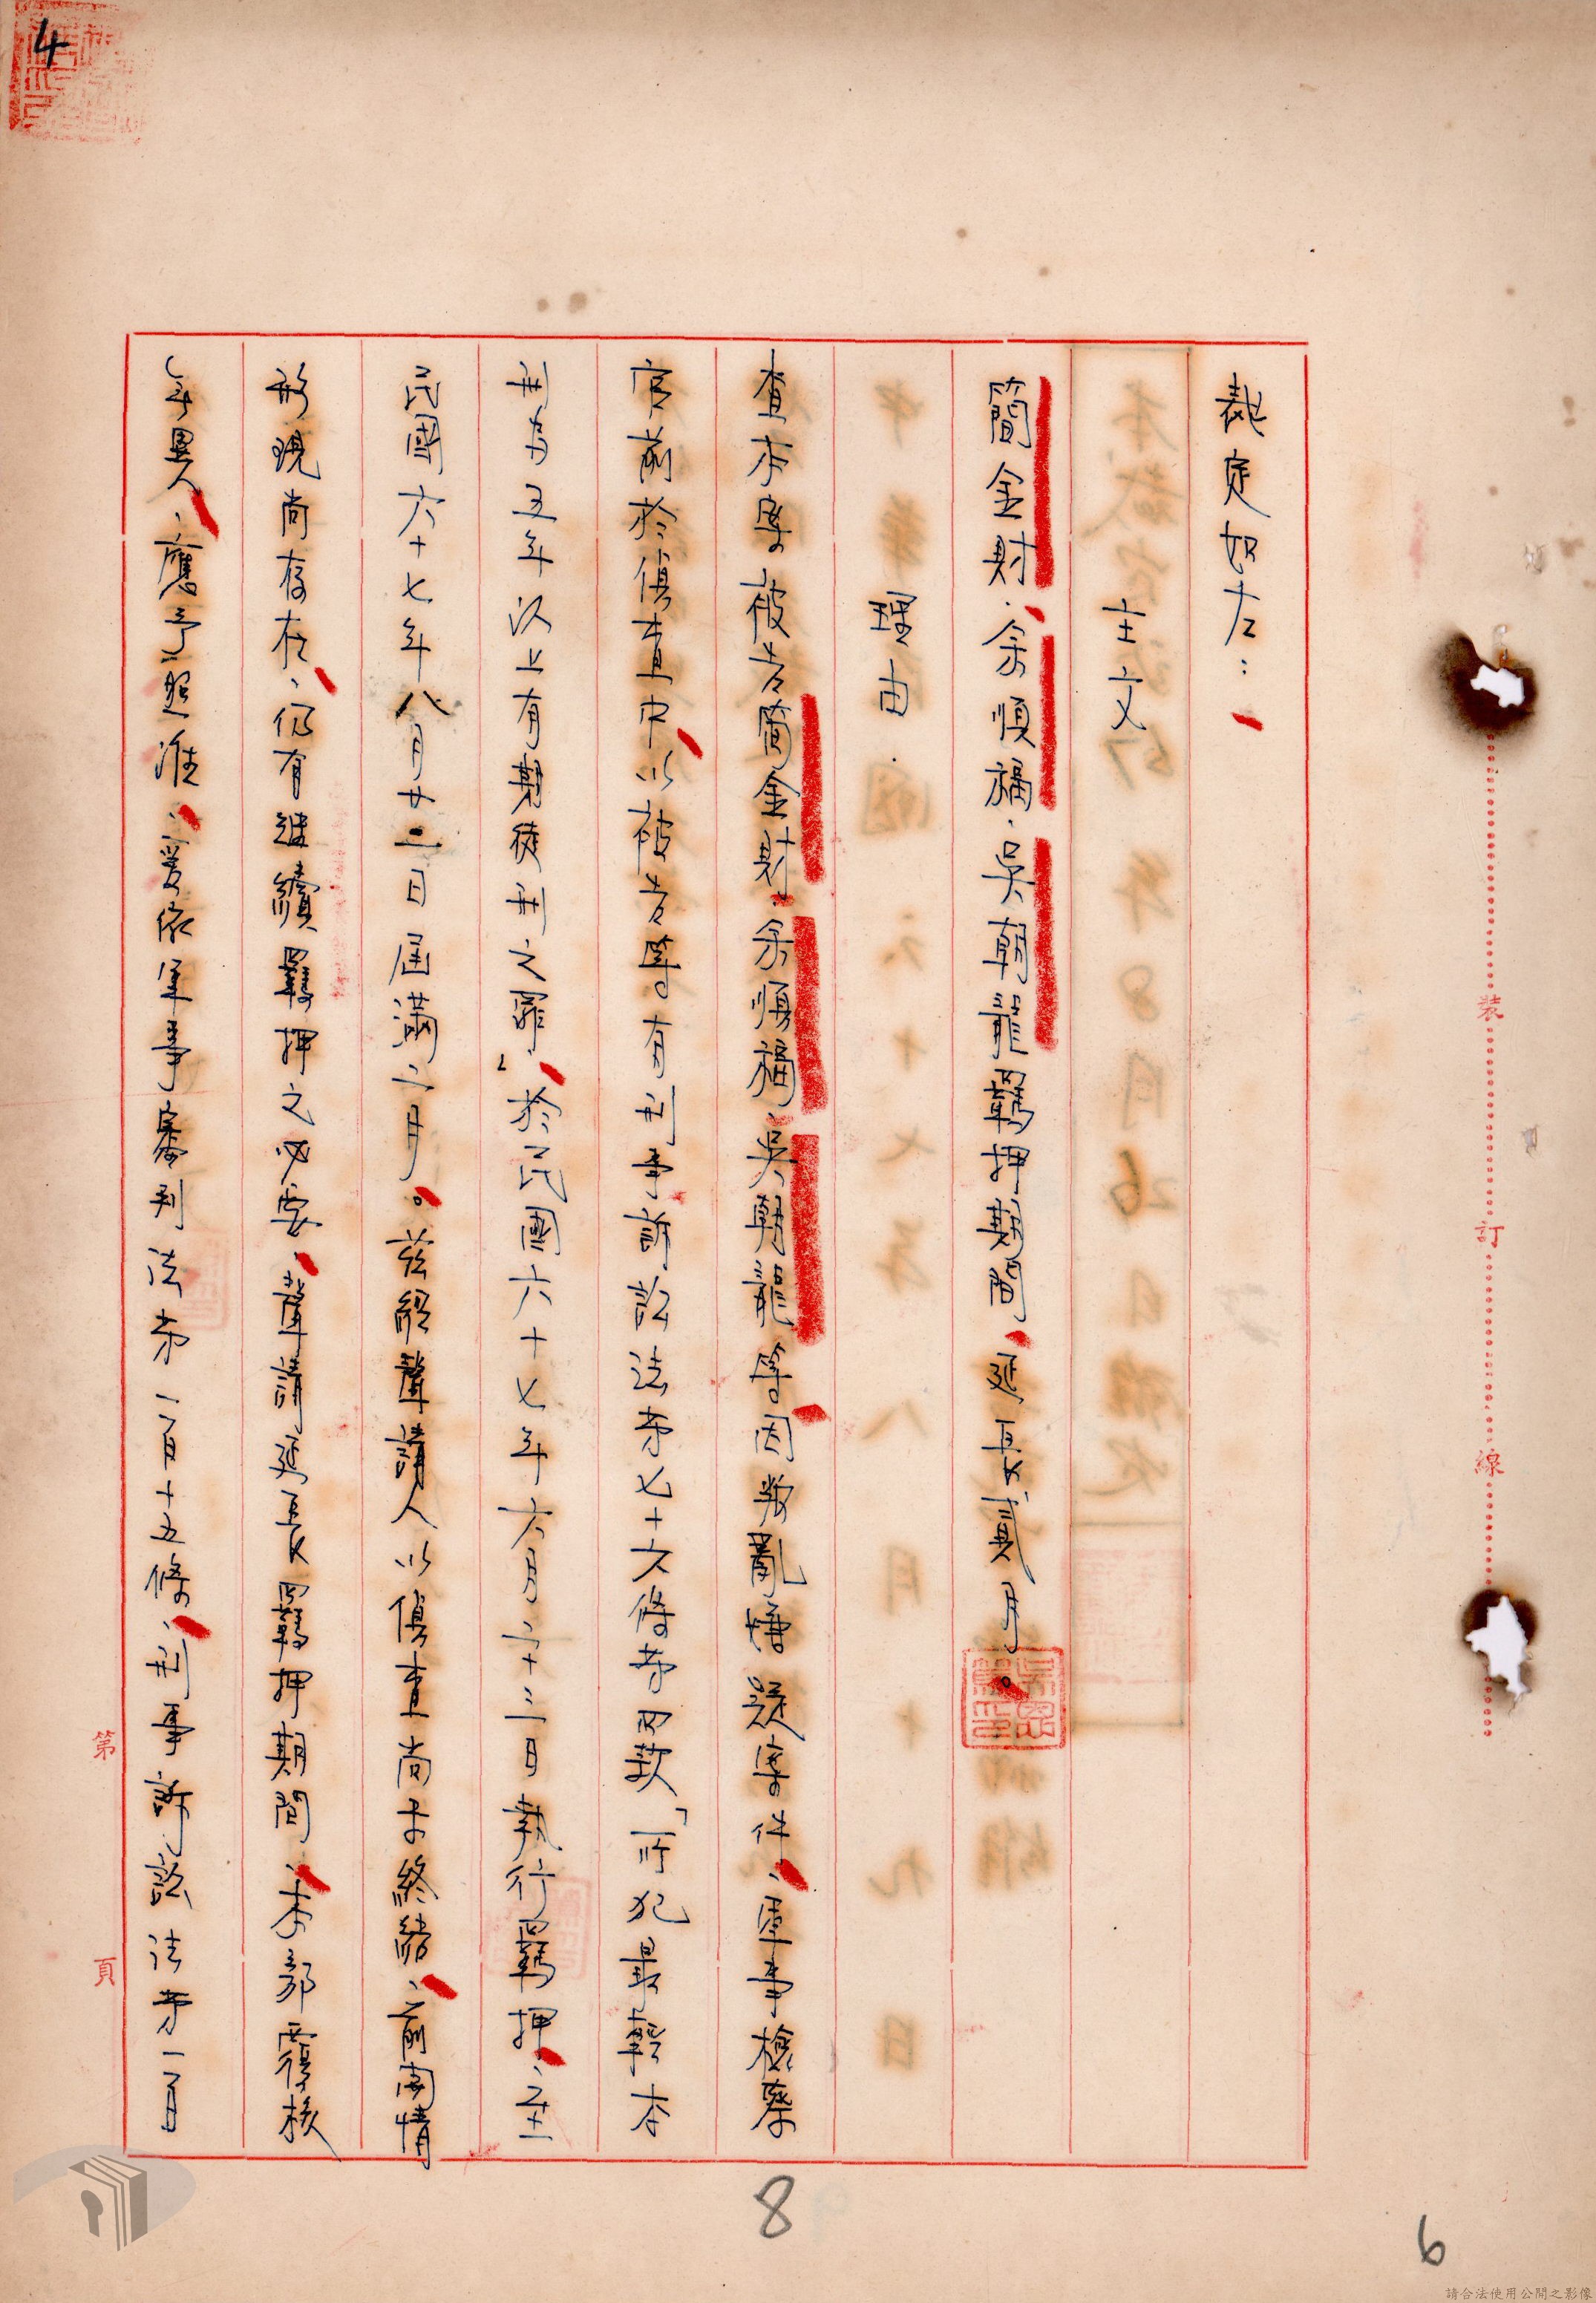 4
裁定如左：
主文
簡金財、余順福、吳朝龍羈押期間、延長貳月。
理由
查本案被告簡金財、余順福、吳朝龍等因叛亂嫌疑案件、軍事檢察
官前於偵查中、以被告等有刑事訴訟法第七十六條第四款「所犯最輕本
刑為五年以上有期徒刑之罪」、於民國六十七年六月二十三日執行羈押、至
民國六十七年八月廿二日屆滿二月。茲經聲請人以偵查尚未終結、前開情
形現尚存在、仍有繼續羈押之必要、聲請延長羈押期間、本部覆核
無異、應予照准、爰依軍事審判法第一百十五條、刑事訴訟法第一百
裝
訂
線
第
頁
8
6
請合法使用公開之影像